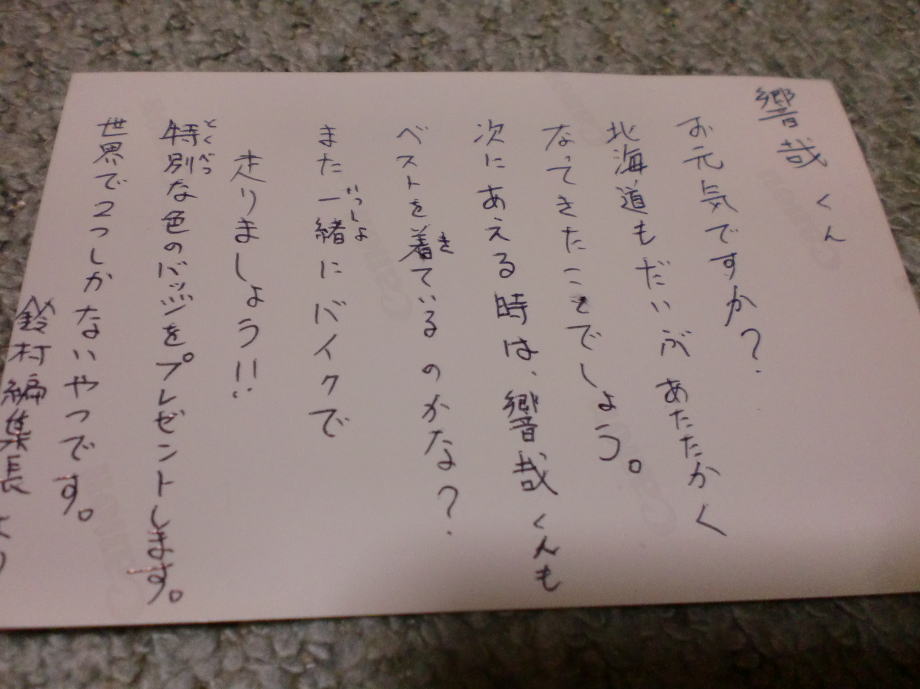 響哉くん
お元気ですか?
北海道もだいぶあたたかく
なってきたことでしょう。
次にあえる時は、響哉くんも
ベストを着ているのかな?
き
また一緒にバイクで
いっしょ
走りましょう!!
特別な色のバッジをプレゼントします。
とくべつ
世界で2つしかないやつです。
鈴村編集長より
Canon
Canon
Canon